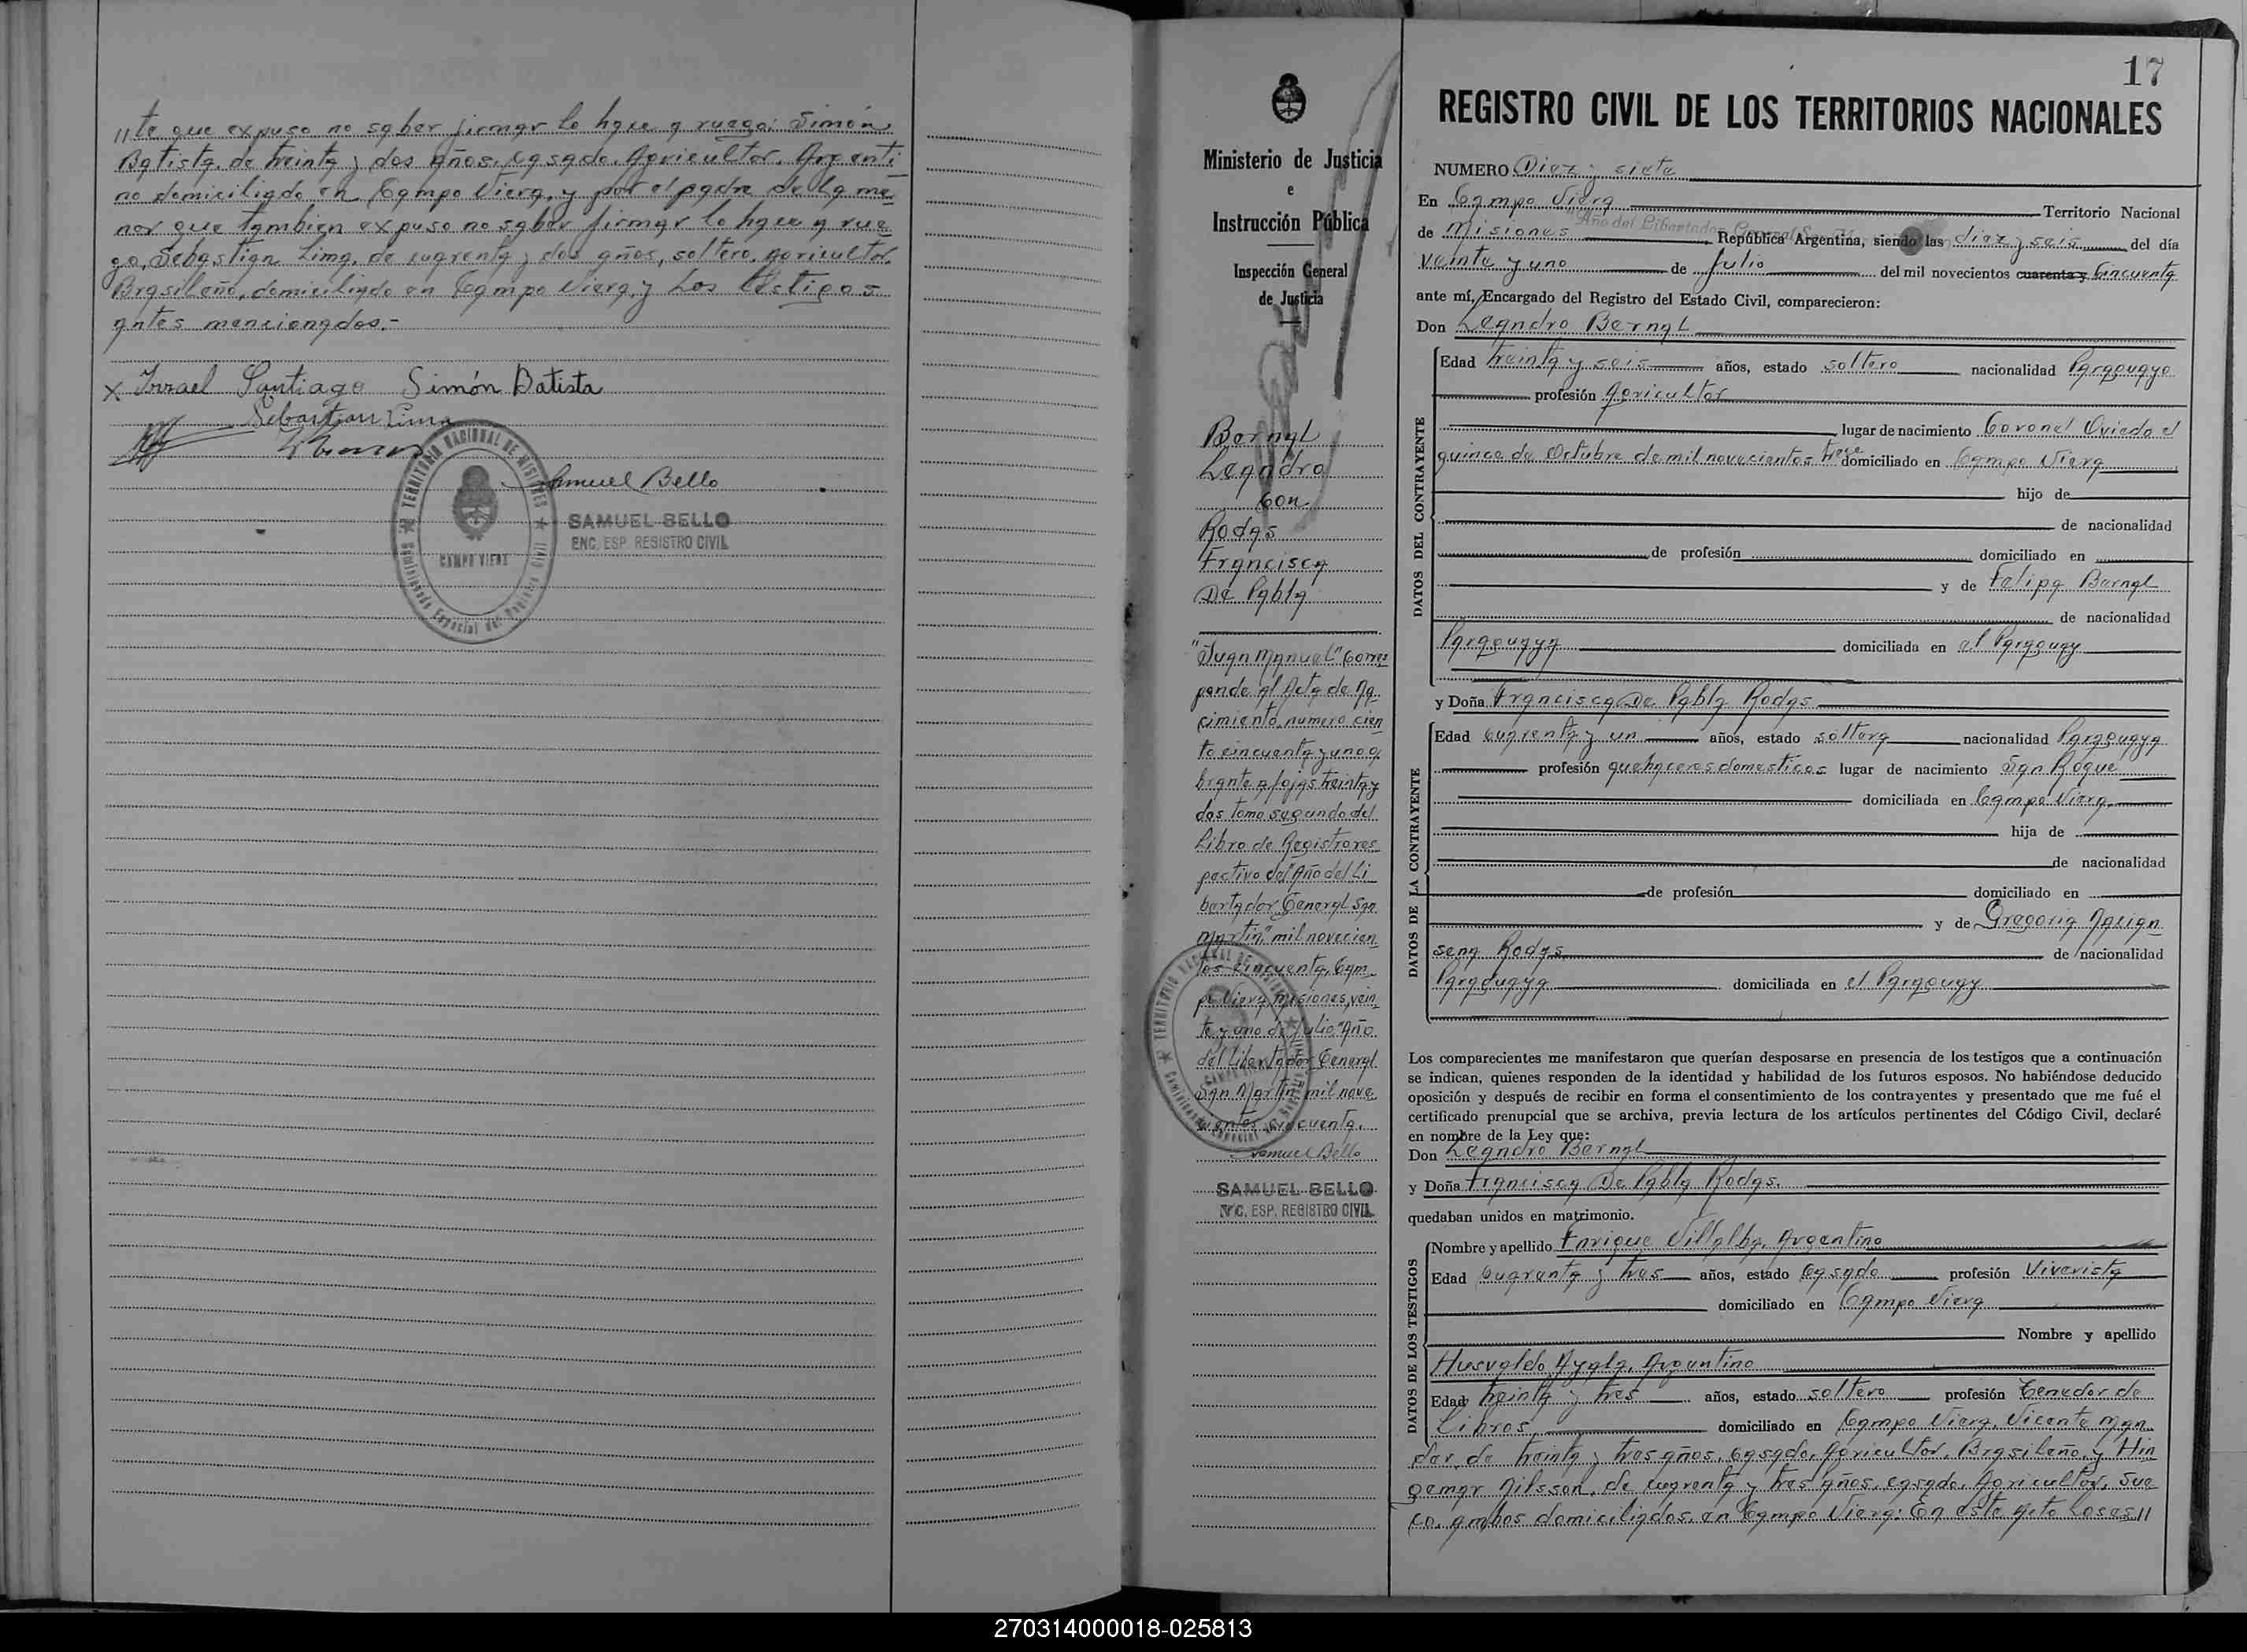 //te que expuso no saber firmar lo hace a ruego: Simón
Batista, de treinta y dos años, casado, Agricultor, Argenti
no domiciliado en Campo Viera, y por el padre de la me
nor que tambien expuso no saber firmar lo hace a rue
go, Sebastian Lima, de cuarenta y dos años, soltero, agricultor,
Brasileño, domiciliado en Campo Viera, y Los testigos
antes mencionados.-
x Israel Santiago Simón Batista
Sebastian Lima
Samuel Bello
SAMUEL BELLO
ENC. ESP. REGISTRO CIVIL
TERRITORIO NACIONAL DE MISIONES
CAMPO VIERA
17
Ministerio de Justicia
e
Instrucción Pública
Inspección General
de Justicia
Bernal
Leandro
Con
Rodas
Francisca
De Pabla
"Juan Manuel" Corres
ponde al Acta de Na
cimiento numero cien
to cincuenta y uno o
brante a fojas treinta y
dos tomo segundo del
Libro de Registro res
pectivo del "Año del Li
bertador General San
Martin" mil novecien
tos cincuenta, Cam
po Viera, Misiones, vein
te y uno de julio "Año
del Libertador General
San Martin" mil nove
cientos cincuenta.
Samuel Bello
SAMUEL BELLO
ENC. ESP. REGISTRO CIVIL
REGISTRO CIVIL DE LOS TERRITORIOS NACIONALES
NUMERO Diez y siete
En Campo Viera Territorio Nacional
"Año del Libertador General San
de Misiones República Argentina, siendo las diez y seis del día
veinte y uno de Julio del mil novecientos cuarenta y Cincuenta
ante mí, Encargado del Registro del Estado Civil, comparecieron:
Don Leandro Bernal
DATOS DEL CONTRAYENTE
Edad treinta y seis años, estado soltero nacionalidad Paraguayo
profesión agricultor
lugar de nacimiento Coronel Oviedo el
quince de Octubre de mil novecientos trece domiciliado en Campo Viera
hijo de
de nacionalidad
de profesión domiciliado en
y de Felipa Bernal
de nacionalidad
Paraguaya domiciliada en el Paraguay
y Doña Francisca De Pabla Rodas
DATOS DE LA CONTRAYENTE
Edad cuarenta y un años, estado soltera nacionalidad Paraguaya
profesión quehaceres domesticos lugar de nacimiento San Roque
domiciliada en Campo Viera
hija de
de nacionalidad
de profesión domiciliado en
y de Gregoria
Rodas de nacionalidad
Paraguaya domiciliada en el Paraguay
Los comparecientes me manifestaron que querían desposarse en presencia de los testigos que a continuación
se indican, quienes responden de la identidad y habilidad de los futuros esposos. No habiéndose deducido
oposición y después de recibir en forma el consentimiento de los contrayentes y presentado que me fué el
certificado prenupcial que se archiva, previa lectura de los artículos pertinentes del Código Civil, declaré
en nombre de la Ley que:
Don Leandro Bernal
y Doña Francisca De Pabla Rodas.
quedaban unidos en matrimonio.
DATOS DE LOS TESTIGOS
Nombre y apellido Enrique Villalba, Argentino
Edad Cuarenta y tres años, estado Casado profesión Viverista
domiciliado en Campo Viera
Nombre y apellido
Husvaldo Ayala, Argentino
Edad treinta y tres años, estado soltero profesión Tenedor de
Libros domiciliado en Campo Viera, Vicente Man
der, de treinta y tres años, casado, Agricultor, Brasileño, y Hin
gemar Nilsson, de cuarenta y tres años, casado, Agricultor, Sue
co, ambos domiciliados en Campo Viera: En este acto Los es//
270314000018-025813